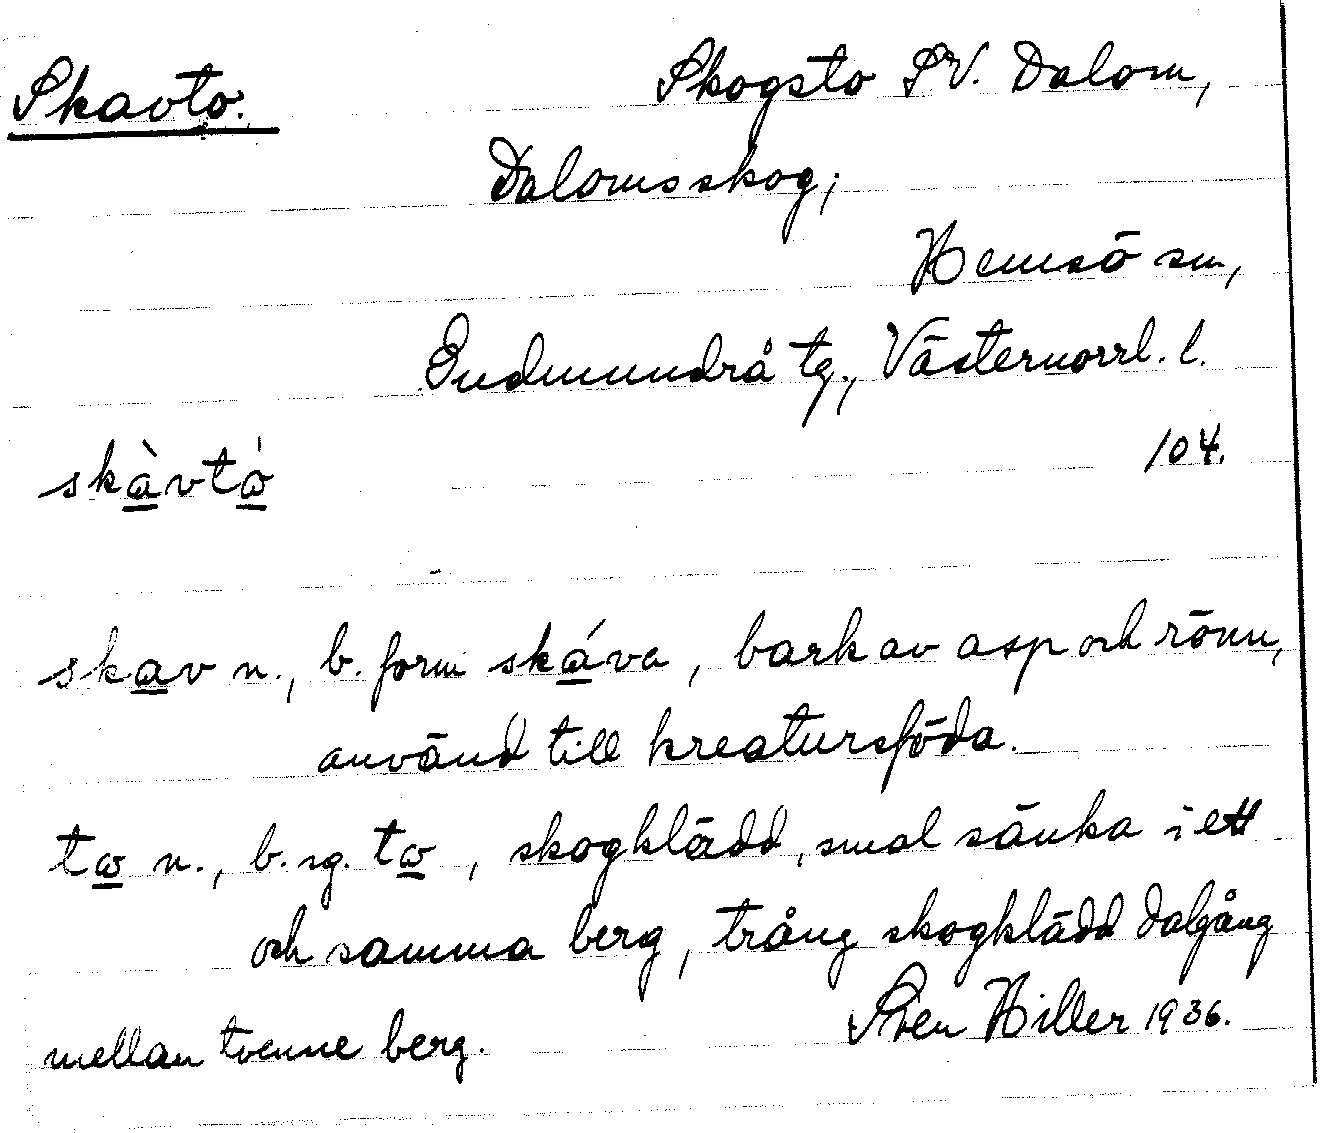 Skavto. Skogsto SV. Dalom,
Dalomsskog;
Hemsö sn,
Gudmundrå tg., Västernorrl. l.
skàvtó 104.
skav n., b. form skáva, bark av asp och rönn,
använd till kreatursföda.
to n., b. sg. to, skogklädd, smal sänka i ett
och samma berg, trång skogklädd dalgång
mellan tvenne berg. Sven Hiller 1936.